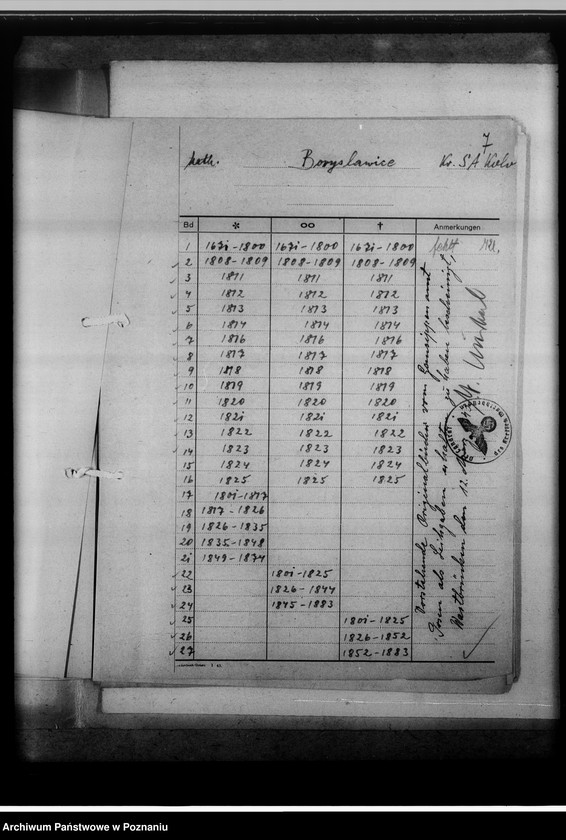 7
kath. Borysławice Kr. S'A Kolo
Bd * ∞ † Anmerkungen
1 1671-1800 1671-1800 1671-1800 fehlt
2 1808-1809 1808-1809 1808-1809
3 1811 1811 1811
4 1812 1812 1812
5 1813 1813 1813
6 1814 1814 1814
7 1816 1816 1816
8 1817 1817 1817
9 1818 1818 1818
10 1819 1819 1819
11 1820 1820 1820
12 1821 1821 1821
13 1822 1822 1822
14 1823 1823 1823
15 1824 1824 1824
16 1825 1825 1825
17 1801-1817
18 1817-1826
19 1826-1835
20 1835-1848
21 1849-1874
22 1801-1825
23 1826-1844
24 1845-1883
25 1801-1825
26 1826-1852
27 1852-1883
Vorstehende Originalbücher vom Gausippenamt
Posen als Leihgaben erhalten zu haben bescheinigt,
Westbrücken den 12.
Archiwum Państwowe w Poznaniu